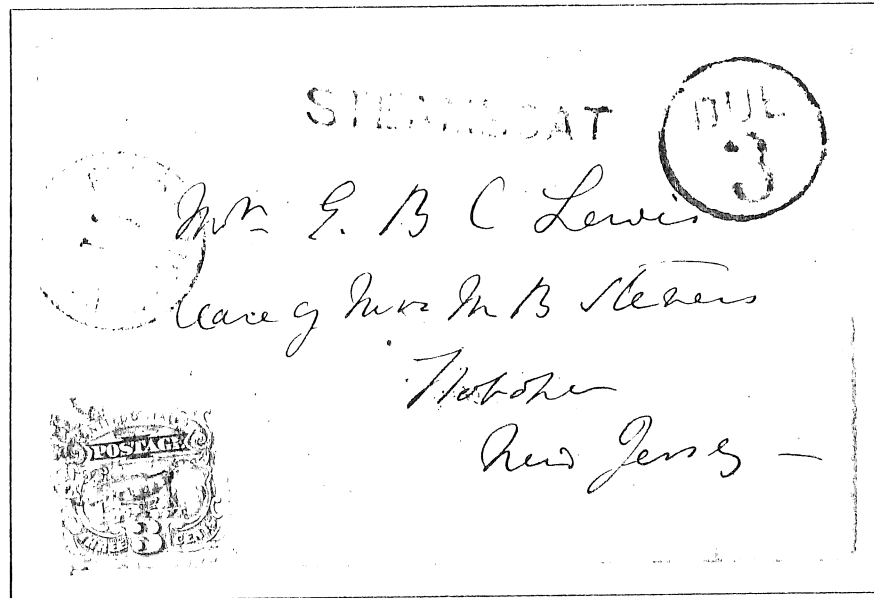 STEAMBOAT
DUE
3
Mrs E. B C Lewis
Care of Mrs M B Stevens
Hoboken
New Jersey —
POSTAGE
THREE 3 CENTS